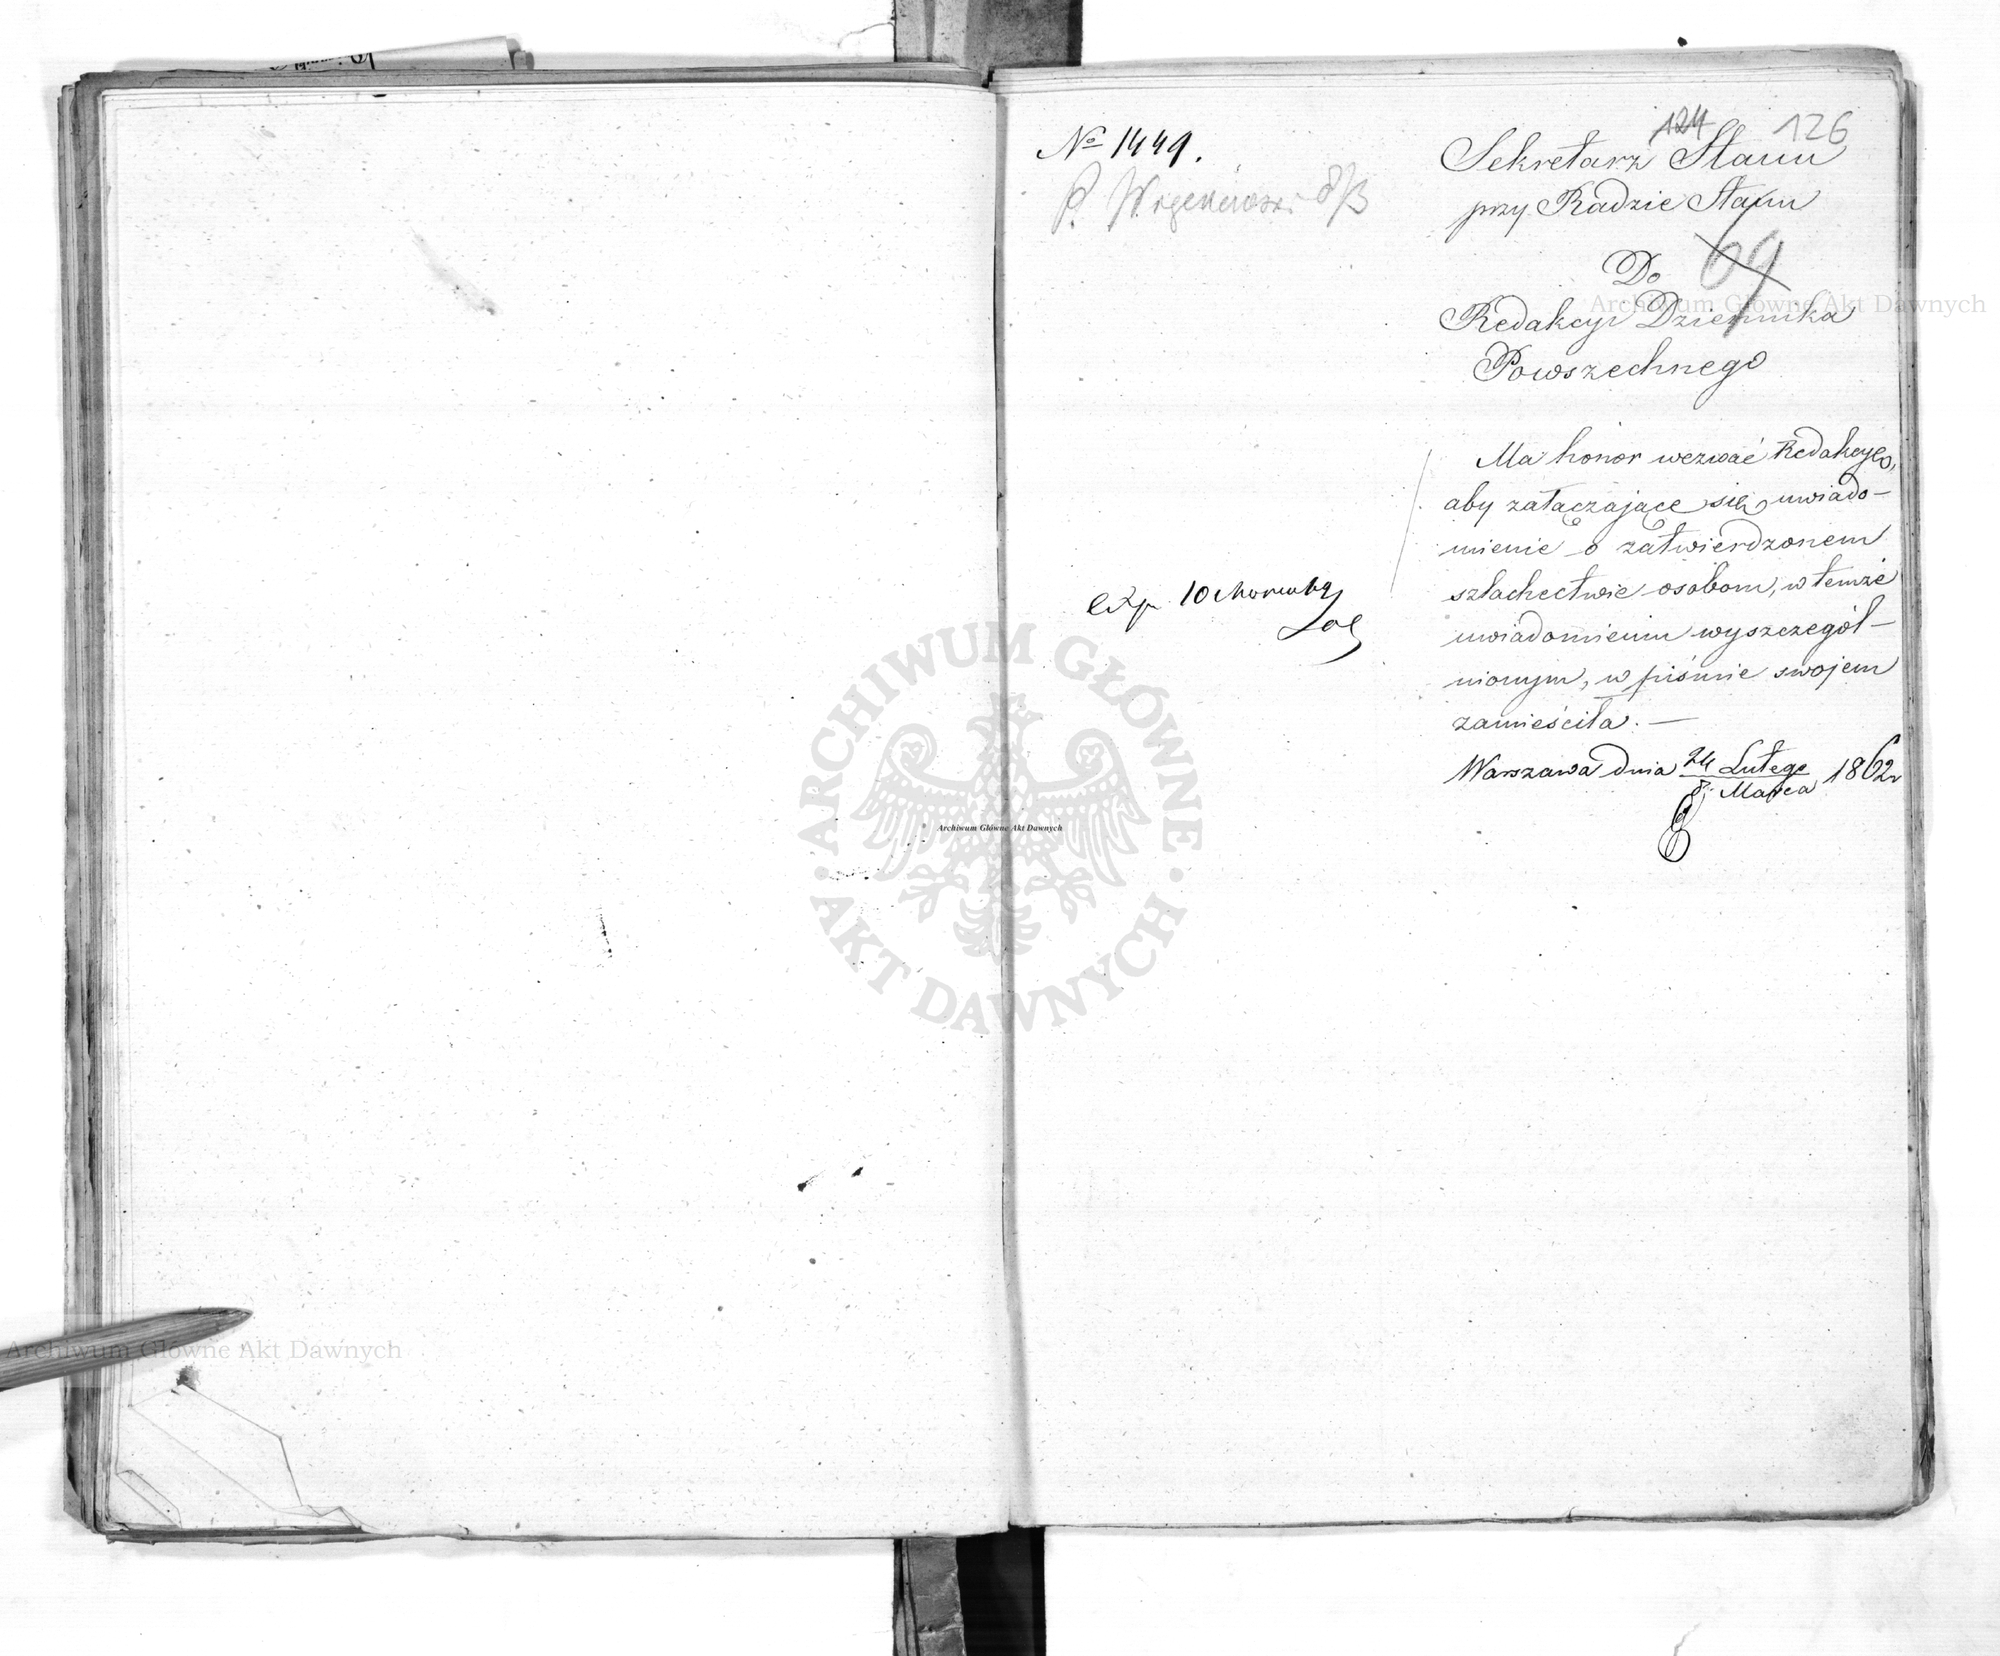 126
124
Nº 1449.
Sekretarz Stanu
przy Radzie Stanu
69
Do
Redakcyi Dziennika
Powszechnego
Ma honor wezwać Redakcyę,
aby załączające się uwiado-
mienie o zatwierdzonem
szlachectwie osobom, w temże
uwiadomieniu wyszczegól-
nionym, w piśmie swojem
zamieściła. —
Warszawa dnia 24 Lutego / 8 Marca 1862 r
P. 8/3
Exp. 10
Archiwum Główne Akt Dawnych
Archiwum Główne Akt Dawnych
Archiwum Główne Akt Dawnych
ARCHIWUM GŁÓWNE
AKT DAWNYCH